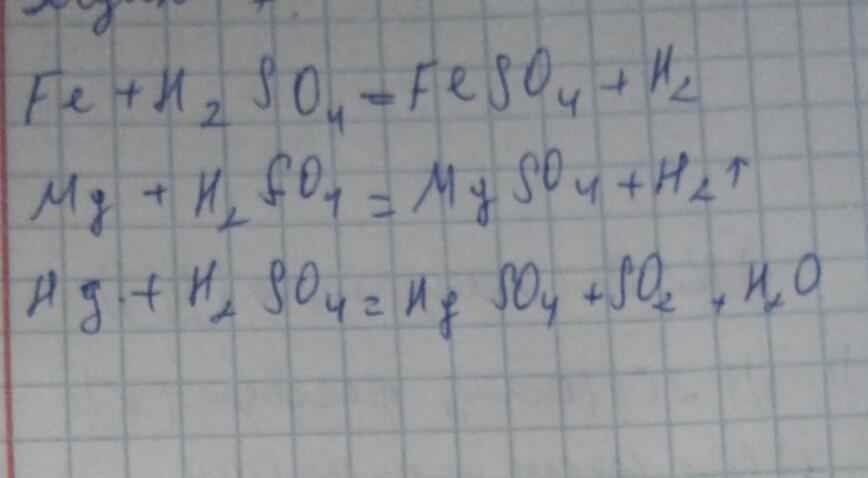 Fe + H₂SO₄ = FeSO₄ + H₂
Mg + H₂SO₄ = MgSO₄ + H₂↑
Hg + H₂SO₄ = HgSO₄ + SO₂ + H₂O